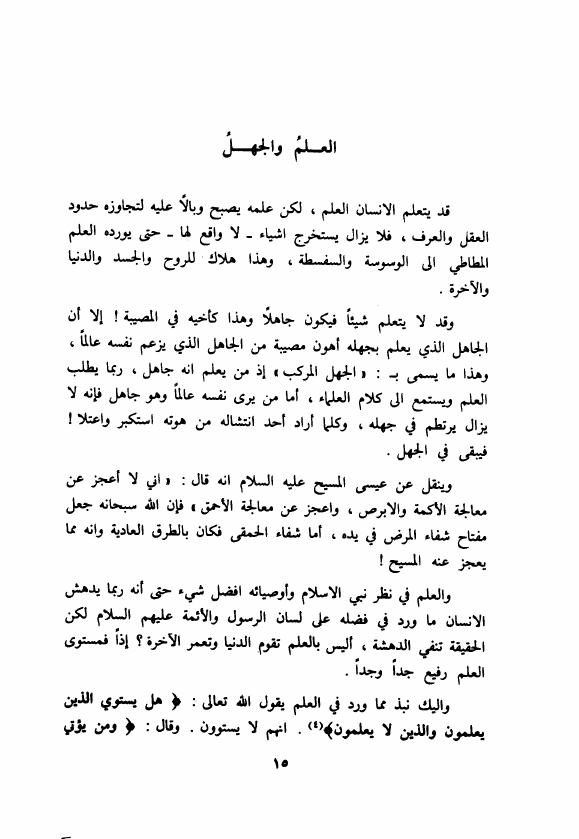 العـــلمُ والجهـــلُ
قد يتعلم الانسان العلم ، لكن علمه يصبح وبالًا عليه لتجاوزه حدود
العقل والعرف ، فلا يزال يستخرج اشياء ـ لا واقع لها ـ حتى يورده العلم
المطاطي الى الوسوسة والسفسطة ، وهذا هلاك للروح والجسد والدنيا
والآخرة .
وقد لا يتعلم شيئاً فيكون جاهلًا وهذا كأخيه في المصيبة ! إلا أن
الجاهل الذي يعلم بجهله أهون مصيبة من الجاهل الذي يزعم نفسه عالماً ،
وهذا ما يسمى بـ : « الجهل المركب » إذ من يعلم انه جاهل ، ربما يطلب
العلم ويستمع الى كلام العلماء ، أما من يرى نفسه عالماً وهو جاهل فإنه لا
يزال يرتطم في جهله ، وكلما أراد أحد انتشاله من هوته استكبر واعتلا !
فيبقى في الجهل .
وينقل عن عيسى المسيح عليه السلام انه قال : « اني لا أعجز عن
معالجة الأكمة والابرص ، واعجز عن معالجة الأحمق » فإن الله سبحانه جعل
مفتاح شفاء المرض في يده ، أما شفاء الحمقى فكان بالطرق العادية وانه مما
يعجز عنه المسيح !
والعلم في نظر نبي الاسلام وأوصيائه افضل شيء حتى أنه ربما يدهش
الانسان ما ورد في فضله على لسان الرسول والأئمة عليهم السلام لكن
الحقيقة تنفي الدهشة ، أليس بالعلم تقوم الدنيا وتعمر الآخرة ؟ إذاً فمستوى
العلم رفيع جداً وجداً .
واليك نبذ مما ورد في العلم يقول الله تعالى : ﴿ هل يستوي الذين
يعلمون والذين لا يعلمون﴾(٤) . انهم لا يستوون . وقال : ﴿ ومن يؤتي
١٥